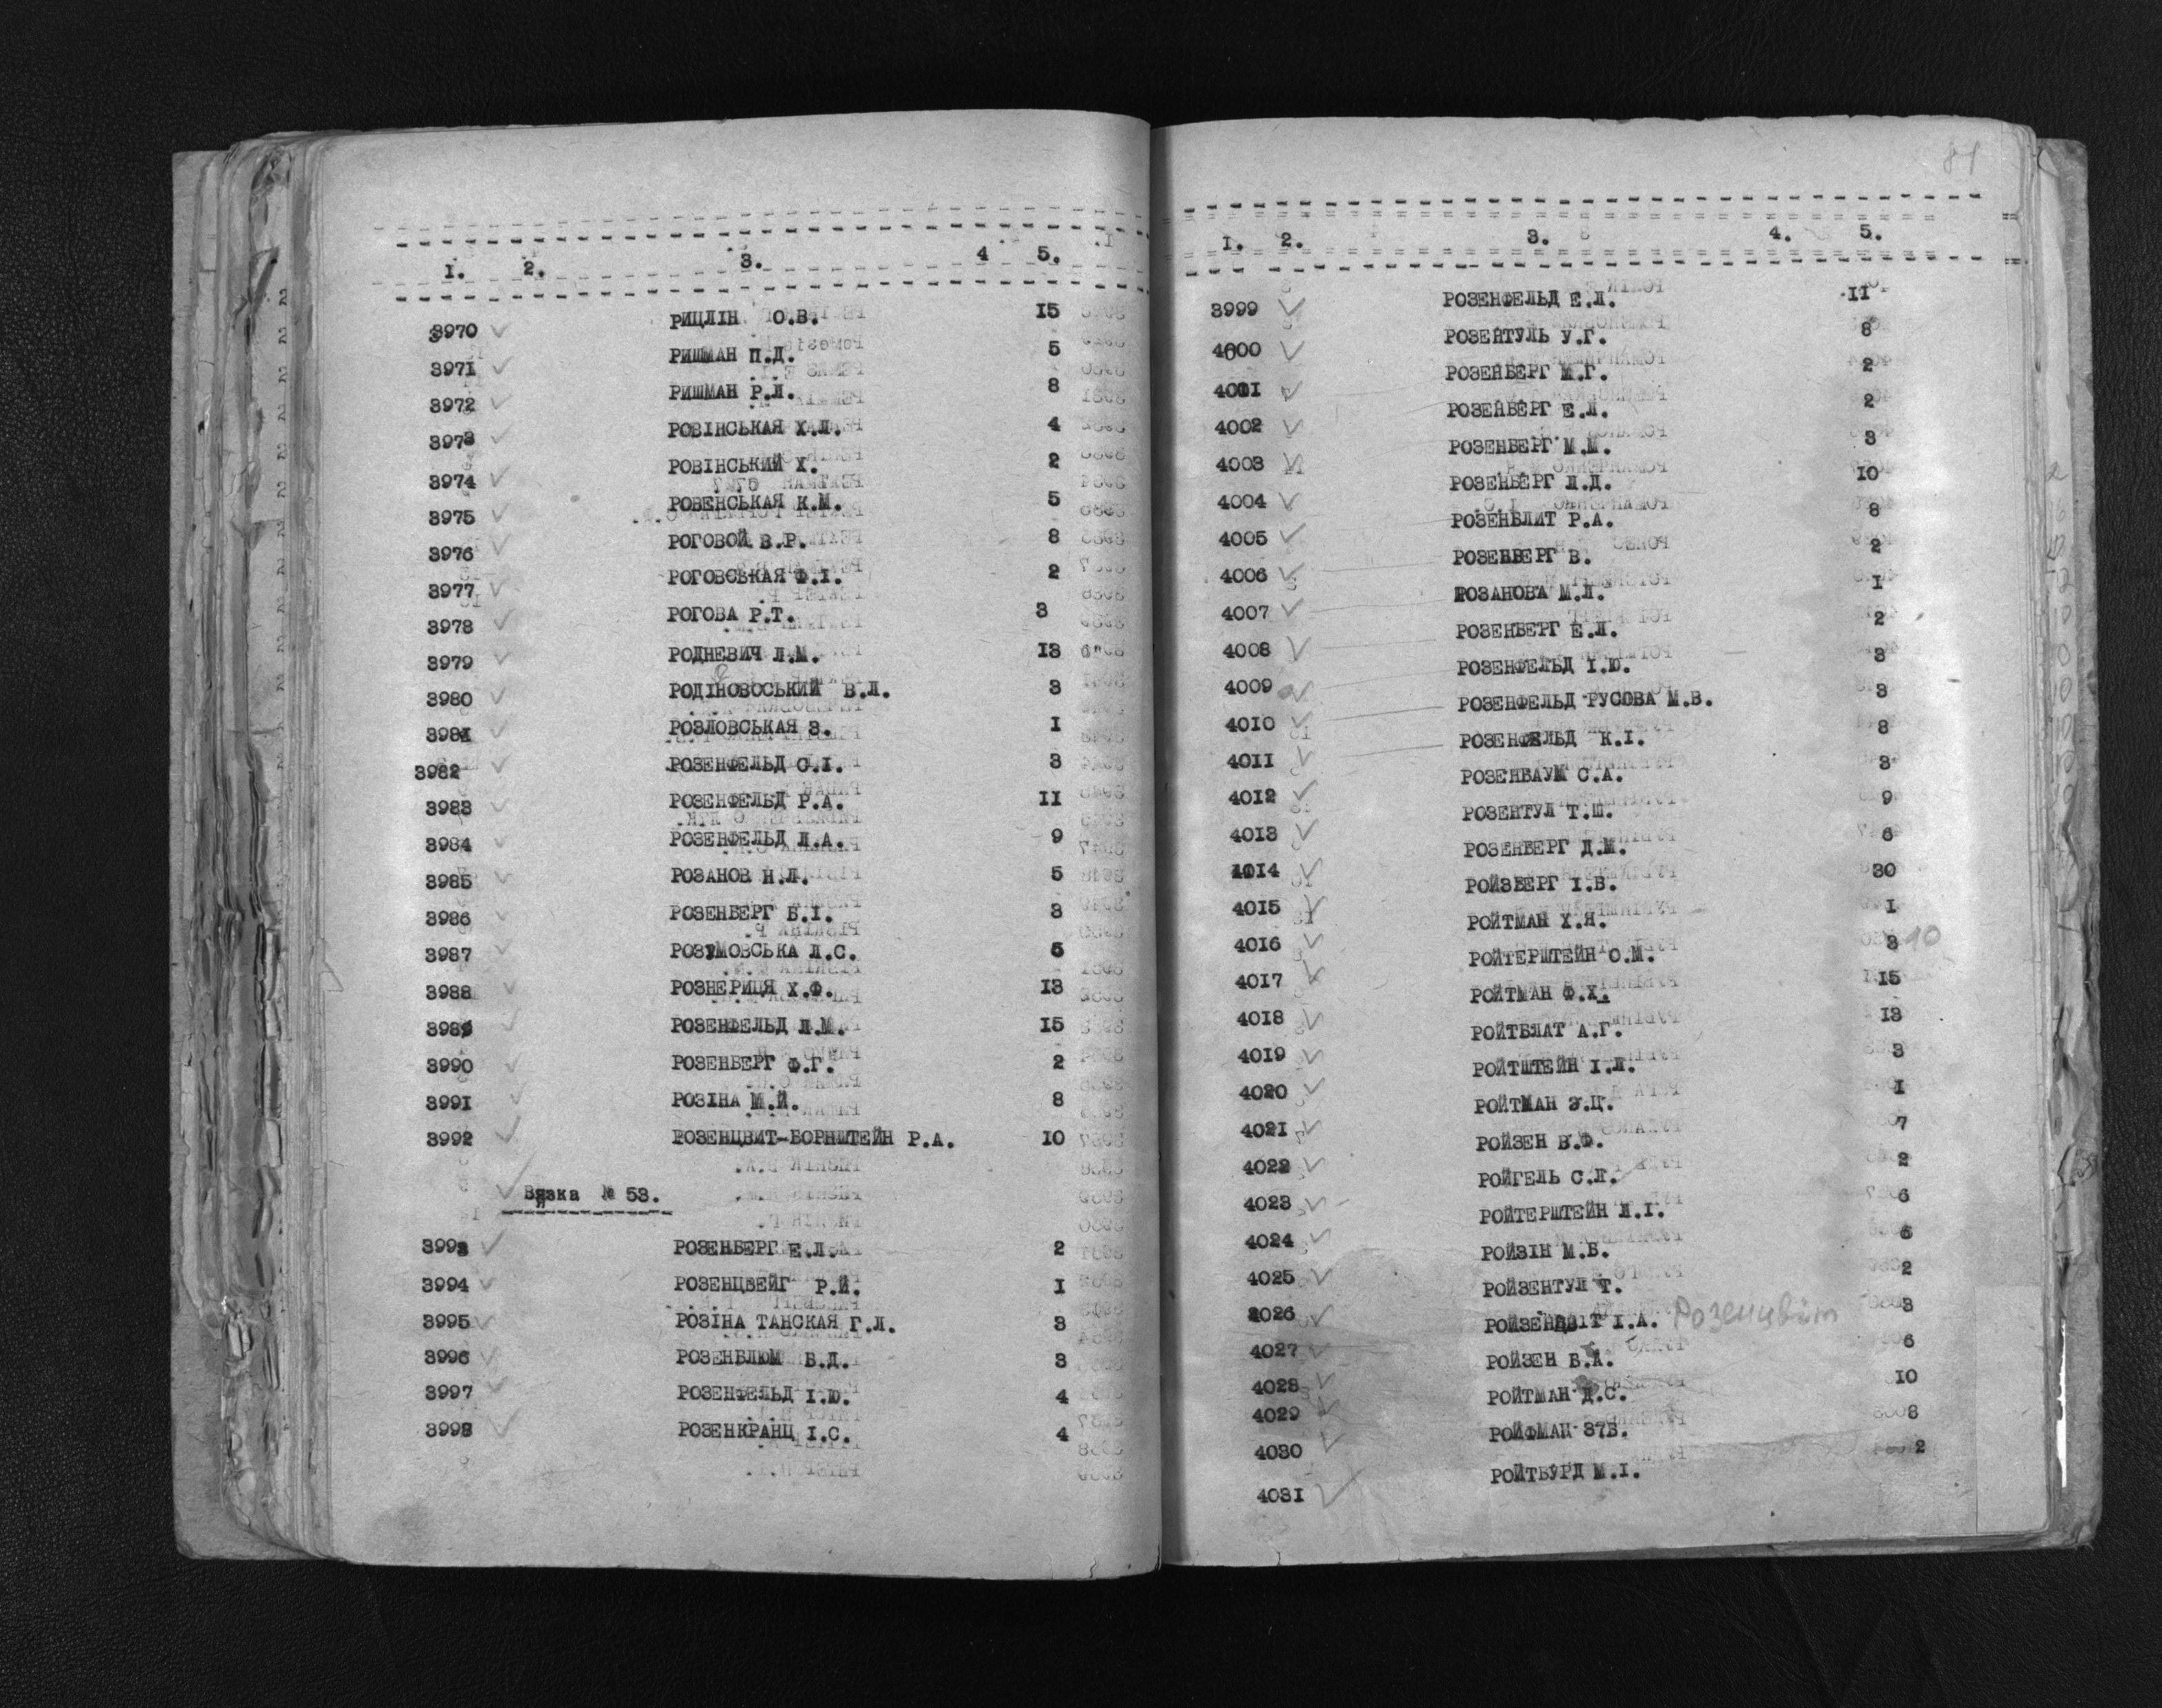 I. 2. 3. 4 5.
3970 РИЦЛІН О.В. 15
3971 РИШМАН П.Д. 5
3972 РИШМАН Р.Л. 8
3973 РОВІНСЬКАЯ Х.Л. 4
3974 РОВІНСЬКИЙ Х. 2
3975 РОВЕНСЬКАЯ К.М. 5
3976 РОГОВОЙ В.Р. 8
3977 РОГОВСЬКАЯ Ф.І. 2
3978 РОГОВА Р.Т. 3
3979 РОДНЕВИЧ Л.М. 13
3980 РОДІНОВОСЬКИЙ В.Л. 3
3981 РОЗЛОВСЬКАЯ З. 1
3982 РОЗЕНФЕЛЬД О.І. 3
3983 РОЗЕНФЕЛЬД Р.А. 11
3984 РОЗЕНФЕЛЬД Л.А. 9
3985 РОЗАНОВ Н.Л. 5
3986 РОЗЕНБЕРГ Б.І. 3
3987 РОЗУМОВСЬКА Л.С. 5
3988 РОЗНЕРИЦЯ Х.Ф. 13
3989 РОЗЕНФЕЛЬД Л.М. 15
3990 РОЗЕНБЕРГ Ф.Г. 2
3991 РОЗІНА М.Й. 8
3992 РОЗЕНЦВИТ-БОРНШТЕЙН Р.А. 10
Вязка № 53.
3993 РОЗЕНБЕРГ Е.Л. 2
3994 РОЗЕНЦВЕЙГ Р.Й. 1
3995 РОЗІНА ТАНСКАЯ Г.Л. 3
3996 РОЗЕНБЛЮМ Б.Д. 3
3997 РОЗЕНФЕЛЬД І.Ю. 4
3998 РОЗЕНКРАНЦ І.С. 4
81
I. 2. 3. 4. 5.
3999 РОЗЕНФЕЛЬД Е.Л. 11
4000 РОЗЕНТУЛЬ У.Г. 8
4001 РОЗЕНБЕРГ М.Г. 2
4002 РОЗЕНБЕРГ Е.Л. 2
4003 РОЗЕНБЕРГ М.М. 3
4004 РОЗЕНБЕРГ Л.Д. 10
4005 РОЗЕНБЛИТ Р.А. 8
4006 РОЗЕНБЕРГ В. 2
4007 РОЗАНОВА М.Л. 1
4008 РОЗЕНБЕРГ Е.Л. 2
4009 РОЗЕНФЕЛЬД І.Ю. 3
4010 РОЗЕНФЕЛЬД РУСОВА М.В. 3
4011 РОЗЕНФЕЛЬД К.І. 8
4012 РОЗЕНБАУМ С.А. 3
4013 РОЗЕНТУЛ Т.Ш. 9
4014 РОЗЕНБЕРГ Д.М. 6
4015 РОЙЗБЕРГ І.В. 30
4016 РОЙТМАН Х.Я. 1
4017 РОЙТЕРШТЕЙН О.М. 3 10
4018 РОЙТМАН Ф.Х. 15
4019 РОЙТБЛАТ А.Г. 13
4020 РОЙТШТЕЙН І.Л. 3
4021 РОЙТМАН Э.Ц. 1
4022 РОЙЗЕН В.Ф. 7
4023 РОЙГЕЛЬ С.Л. 2
4024 РОЙТЕРШТЕЙН Л.І. 6
4025 РОЙЗІН М.Б. 6
4026 РОЙЗЕНТУЛ Т. 2
4027 РОЙЗЕНЦВІТ І.А. Розенцвіт 3
4028 РОЙЗЕН Б.А. 6
4029 РОЙТМАН Д.С. 10
4030 РОЙФМАН З7Б. 8
4031 РОЙТБУРД М.І. 2